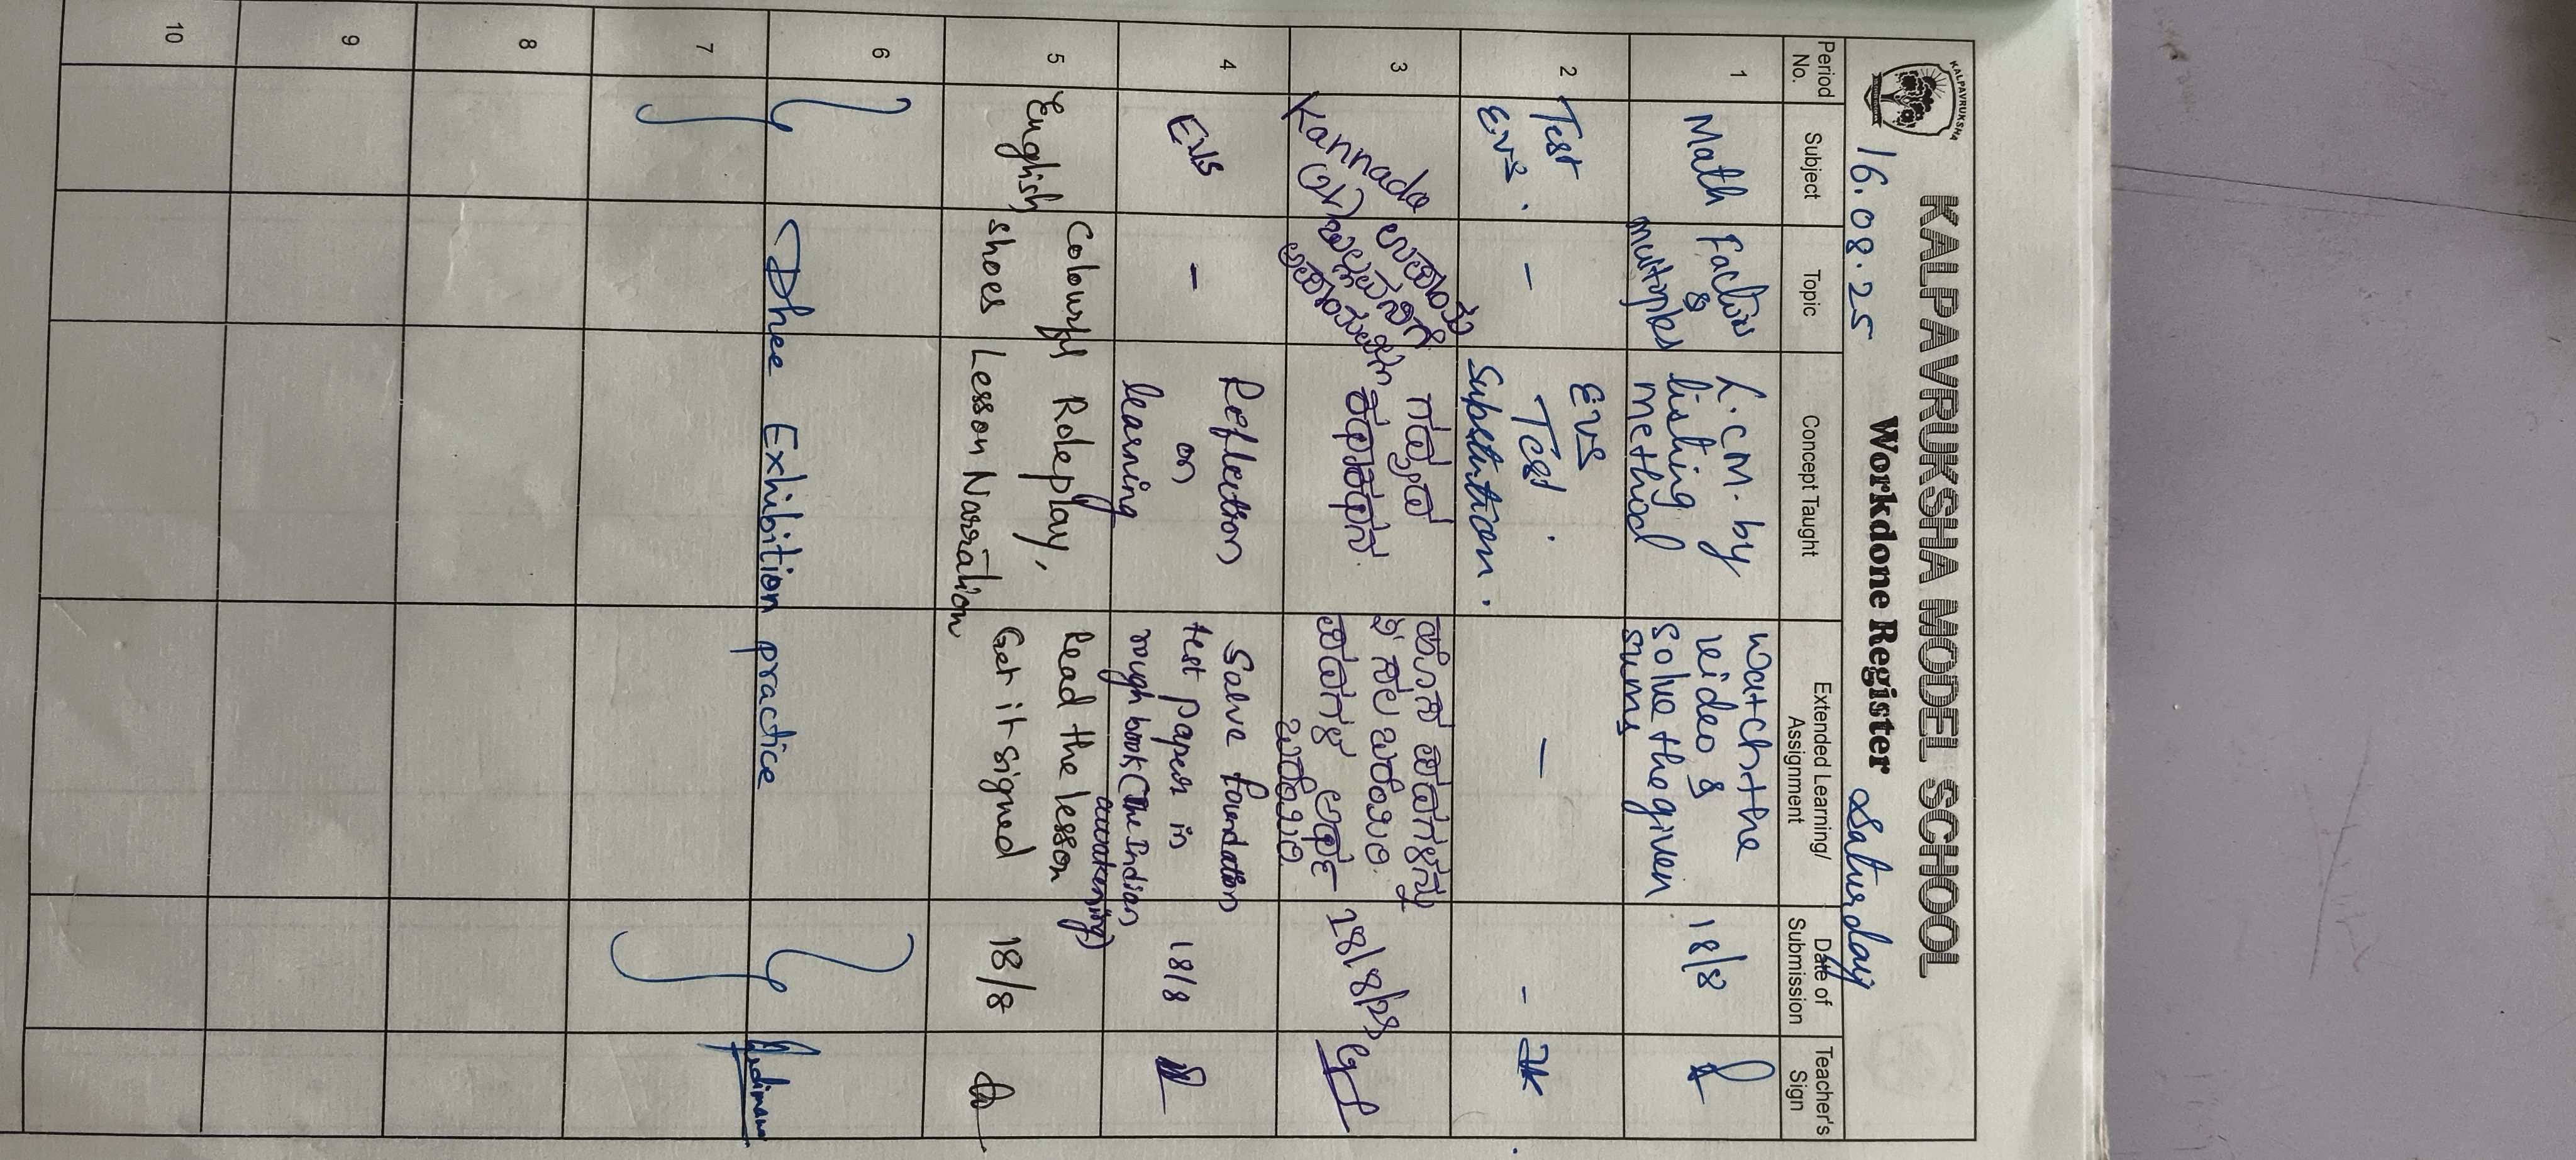 KALPAVRUKSHA
KALPAVRUKSHA MODEL SCHOOL
16.08.25
Workdone Register
Saturday
Period No.
Subject
Topic
Concept Taught
Extended Learning/ Assignment
Date of Submission
Teacher's Sign
1
Math
Factors
&
multiples
L.C.M. by
listing
method
Watch the
video &
solve the given
sums
18/8
2
Test
EVS.
-
EVS
Test.
Substitution.
-
-
3
Kannada
(2L)
ಗದ್ಯದ
ವಿವರಣೆ
ಪದಗಳನ್ನು
ಸಲ ಬರೆಯಿರಿ.
ಪದಗಳ ಅರ್ಥ
ಬರೆಯಿರಿ.
18/8/25
4
EVS
-
Reflection
on
learning
Solve foundation
test papers in
rough book (The Indian
awakening)
18/8
5
English
Colourful
shoes
Roleplay,
Lesson Narration
Read the lesson
Get it signed
18/8
6
7
Dhee Exhibition practice
8
9
10